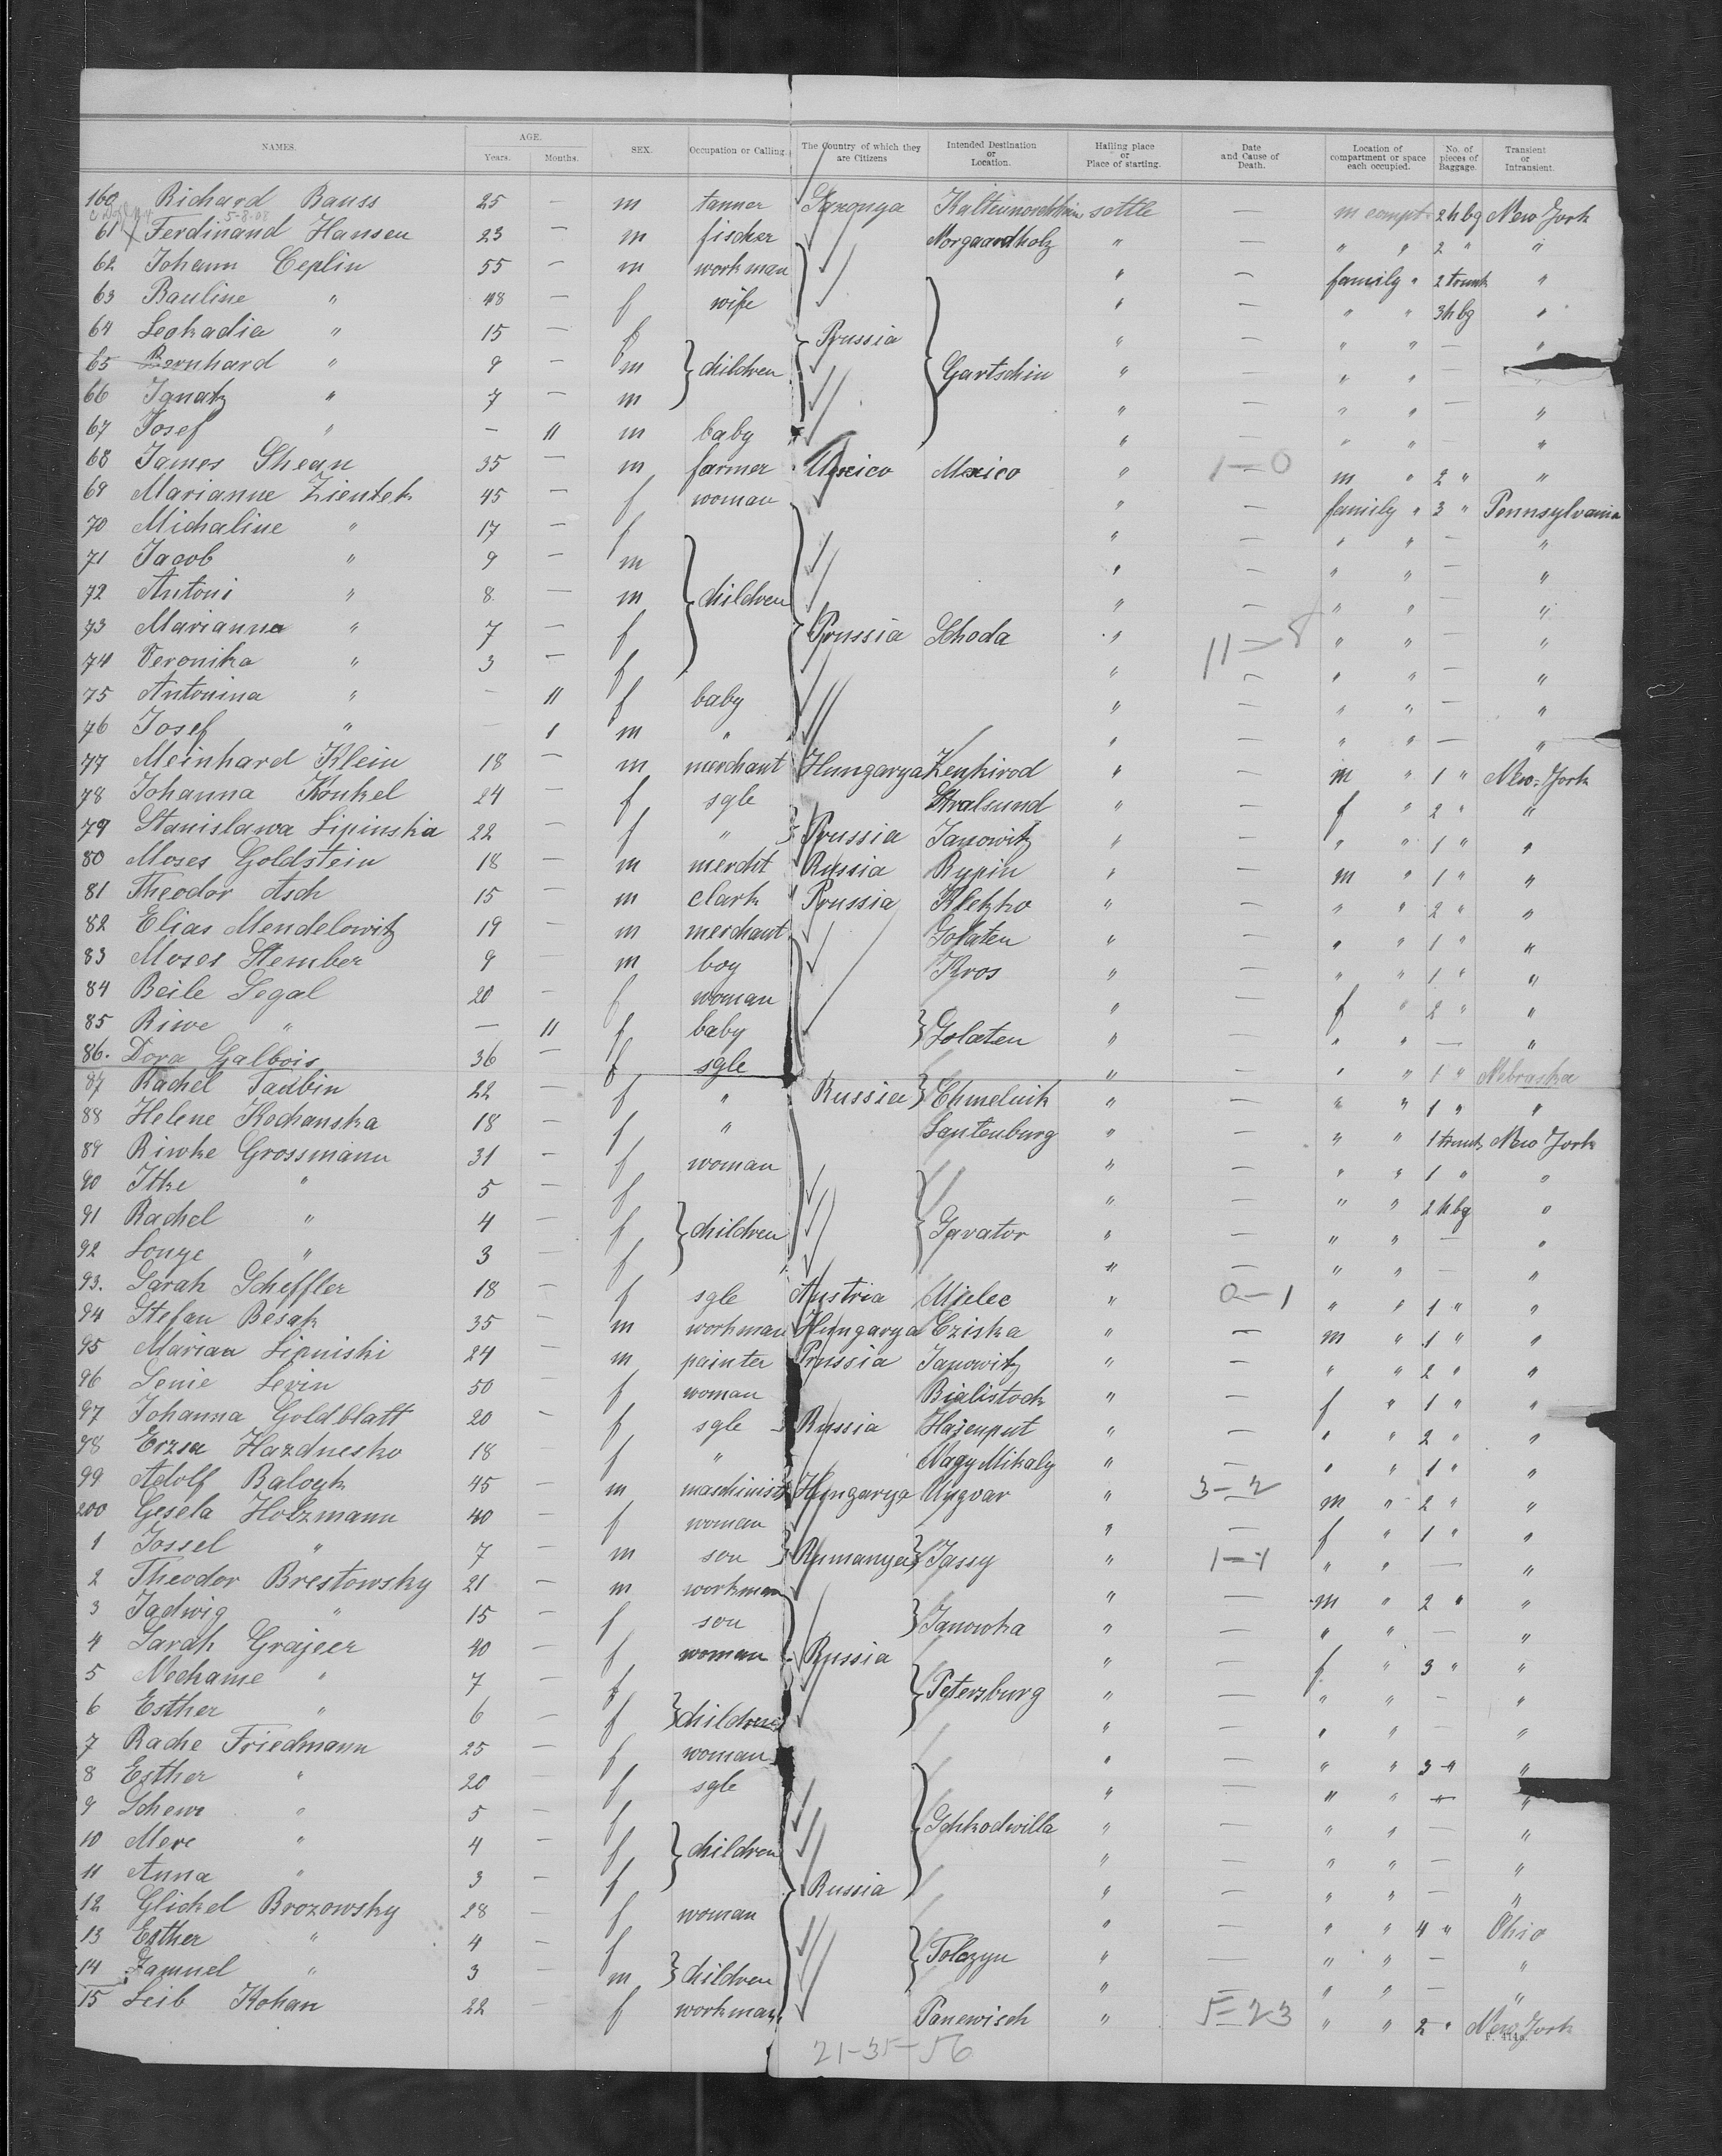 NAMES. AGE. Years. Months. SEX. Occupation or Calling. The Country of which they are Citizens Intended Destination or Location. Hailing place or Place of starting. Date and Cause of Death. Location of compartment or space each occupied. No. of pieces of Baggage. Transient or Intransient.
160 Richard Bauss 25 — m tanner Saxonya settle — m compt. 2 hbg New York
5-8-08
61 Ferdinand Hansen 23 — m fischer Norgaardholz " — " " 2 " "
62 Johann Ceplin 55 — m workman " — family " 2 trunk "
63 Pauline " 48 — f wife " — " " 3 hbg "
64 Leokadia " 15 — f Prussia " — " " — "
65 Bernhard " 9 — m children Gartschin " — " " —
66 Ignatz " 7 — m " — " " — "
67 Josef " — 11 m baby " — " " "
68 James Shean 35 — m farmer Mexico Mexico " 1—0 m " 2 " "
69 Marianne Zientek 45 — f woman " — family " 3 " Pennsylvania
70 Michaline " 17 — f " — " " — "
71 Jacob " 9 — m " — " " — "
72 Antoni " 8 — m children " — " " — "
73 Marianna " 7 — f Prussia Schoda " 11—8 " " — "
74 Veronika " 3 — f " — " " — "
75 Antonina " — 11 f baby " — " " — "
76 Josef " — 1 m " " — " " — "
77 Meinhard Klein 18 — m merchant Hungarya Kenkirod " — m " 1 " New-York
78 Johanna Konkel 24 — f sgle Stralsund " — f " 2 " "
79 Stanislawa Lipinskia 22 — f " Prussia Janowitz " — " " 1 " "
80 Moses Goldstein 18 — m mercht Russia Rypin " — m " 1 " "
81 Theodor Asch 15 — m clark Prussia Klezko " — " " 2 " "
82 Elias Mendelowitz 19 — m merchant Golaten " — " " 1 " "
83 Moses Stember 9 — m boy Kros " — " " 1 " "
84 Beile Segal 20 — f woman " — f " 2 " "
85 Riwe " — 11 f baby Golaten " — " " — "
86. Dora Galbois 36 — f sgle " — " " 1 " Nebraska
87 Rachel Taubin 22 — f " Russia Chmelnik " — " " 1 " "
88 Helene Kochanska 18 — f " Lautenburg " — " " 1 trunk New York
89 Riwke Grossmann 31 — f woman " — " " 1 " "
90 Itke " 5 — f " — " " 2 hbg "
91 Rachel " 4 — f children Gavator " — " " — "
92 Souye " 3 — f " — " " — "
93. Sarah Scheffler 18 — f sgle Austria Mielec " 0—1 " " 1 " "
94 Stefan Besak 35 — m workman Hungarya Cziska " — m " 1 " "
95 Marian Lipinski 24 — m painter Prussia Janowitz " — " " 2 " "
96 Senie Levin 50 — f woman Bialistock " — f " 1 " "
97 Johanna Goldblatt 20 — f sgle Russia Hasenput " — " " 2 " "
98 Erzsa Hazdnesko 18 — f " Nagy Mihaly " — " " 1 " "
99 Adolf Balogh 45 — m maschinist Hungarya Ungvar " 3—2 m " 2 " "
200 Gesela Holzmann 40 — f woman " — f " 1 " "
1 Jossel " 7 — m son Rumanya Jassy " 1—1 " " — "
2 Theodor Brestowsky 21 — m workman " — m " 2 " "
3 Jadwig " 15 — f son Janowka " — " " — "
4 Sarah Grajeer 40 — f woman Russia " — f " 3 " "
5 Nechame " 7 — f Petersburg " — " " — "
6 Esther " 6 — f children " — " " — "
7 Rache Friedmann 25 — f woman " — " " 3 " "
8 Esther " 20 — f sgle " — " " — "
9 Schewe " 5 — f Schkodwilla " — " " — "
10 Mere " 4 — f children " — " " — "
11 Anna " 3 — f Russia " — " " — "
12 Glickel Brozowsky 28 — f woman " — " " 4 " Ohio
13 Esther " 4 — f Tolczyn " — " " — "
14 Samuel " 3 — m children " — " " — "
15 Leib Kohan 22 — f workman Panewisch " 5—23 " " 2 " New York
21-35-56